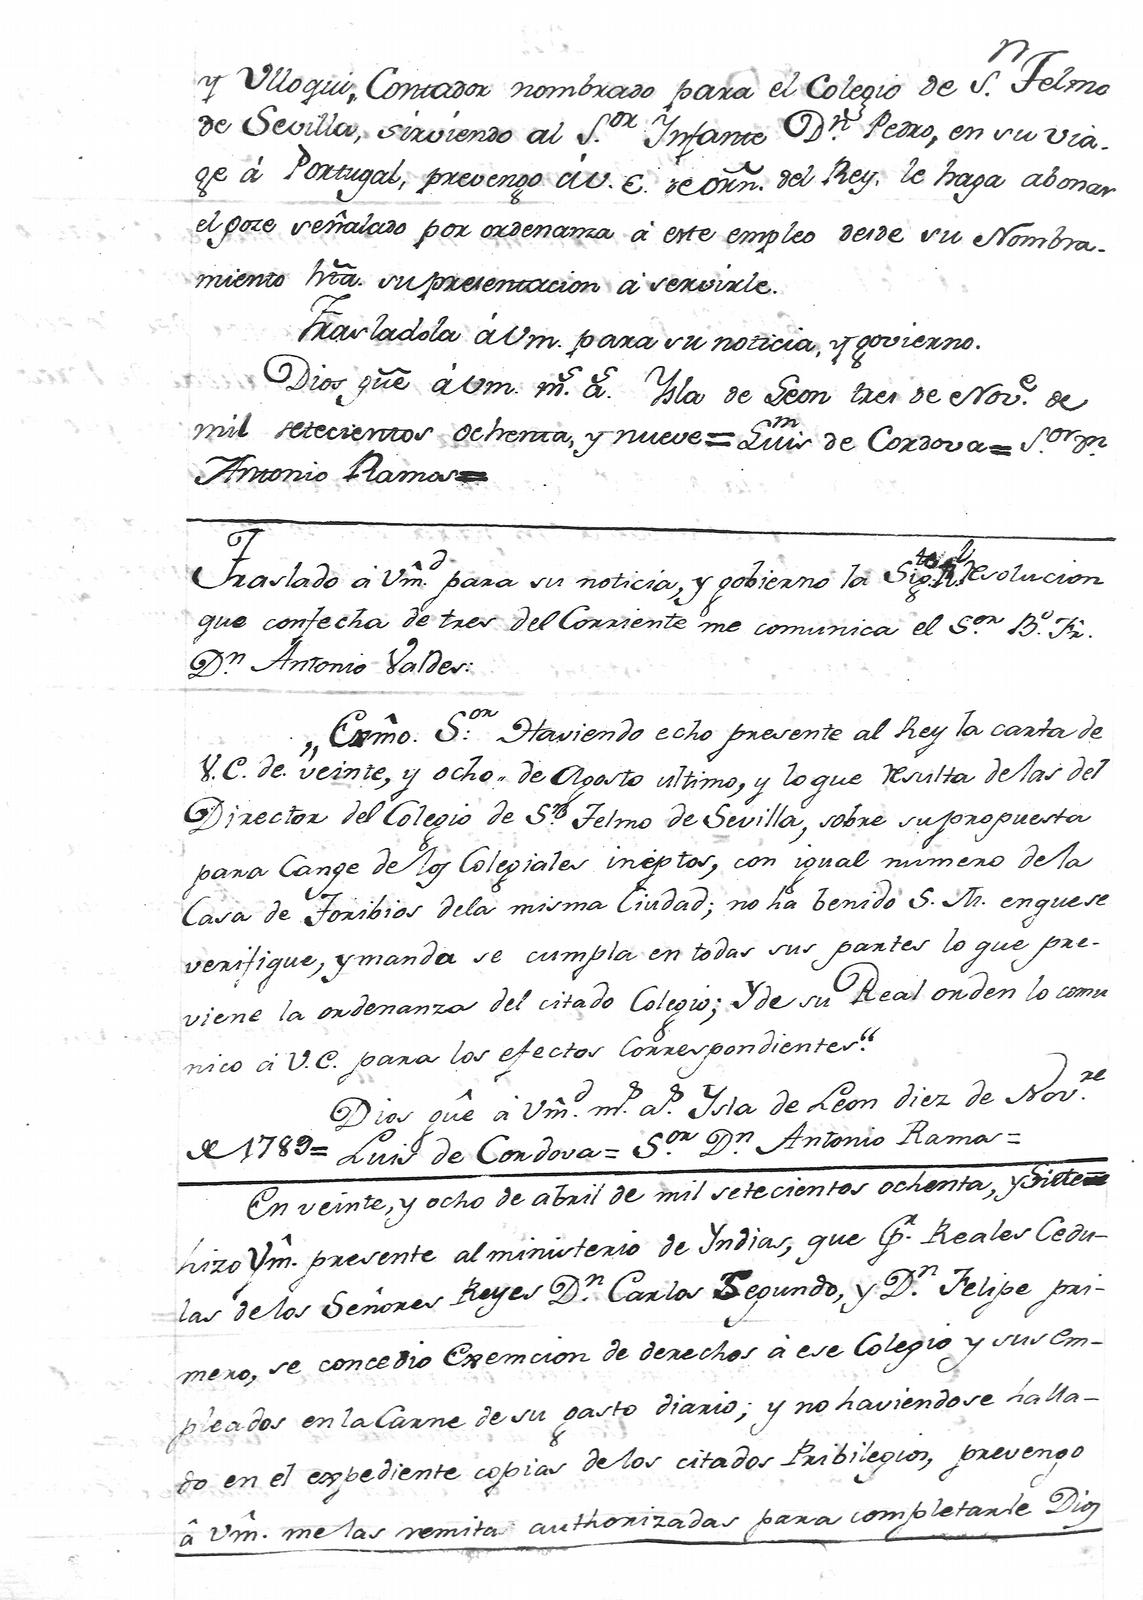 y Vlloqui, Contador nombrado para el Colegio de S.n Telmo
de Sevilla, sirviendo al S.or Infante D.n Pedro, en su via-
ge á Portugal, prevengo á V. E. de orñ. del Rey, le haga abonar
el goze señalado por ordenanza a este empleo desde su Nombra-
miento hta. su presentacion a servirle.
Trasladola á Vm. para su noticia, y govierno.
Dios gue á Vm. m.s a.s Ysla de Leon tres de Nov.e de
mil setecientos ochenta, y nueve = Luis de Cordova = S.or Dn.
Antonio Ramos =
Traslado á Vm.d para su noticia, y gobierno la Sig.te Rl. resolucion
que con fecha de tres del Corriente me comunica el S.or B.o Fr.
D.n Antonio Valdes:
„ Exmo. S.or Haviendo echo presente al Rey la carta de
V. E. de veinte, y ocho de Agosto ultimo, y lo que resulta de las del
Director del Colegio de S.n Telmo de Sevilla, sobre su propuesta
para Cange de los Colegiales ineptos, con igual numero de la
Casa de Toribios de la misma Ciudad; no ha benido S. M. en que se
verifique, y manda se cumpla en todas sus partes lo que pre-
viene la ordenanza del citado Colegio; Y de su Real orden lo comu
nico á V. E. para los efectos Correspondientes."
Dios gue á Vm.d m.s a.s Ysla de Leon diez de Nov.re
de 1789 = Luis de Cordova = S.or D.n Antonio Rama =
En veinte, y ocho de abril de mil setecientos ochenta, y Siete =
hizo Vm. presente al ministerio de Yndias, que p.r Reales Cedu-
las de los Señores Reyes D.n Carlos Segundo, y D.n Felipe pri-
mero, se concedio Exemcion de derechos á ese Colegio y sus em-
pleados en la Carne de su gasto diario; y no haviendose halla-
do en el expediente copias de los citados Pribilegios, prevengo
â Vm. me las remita authorizadas para completarle Dios